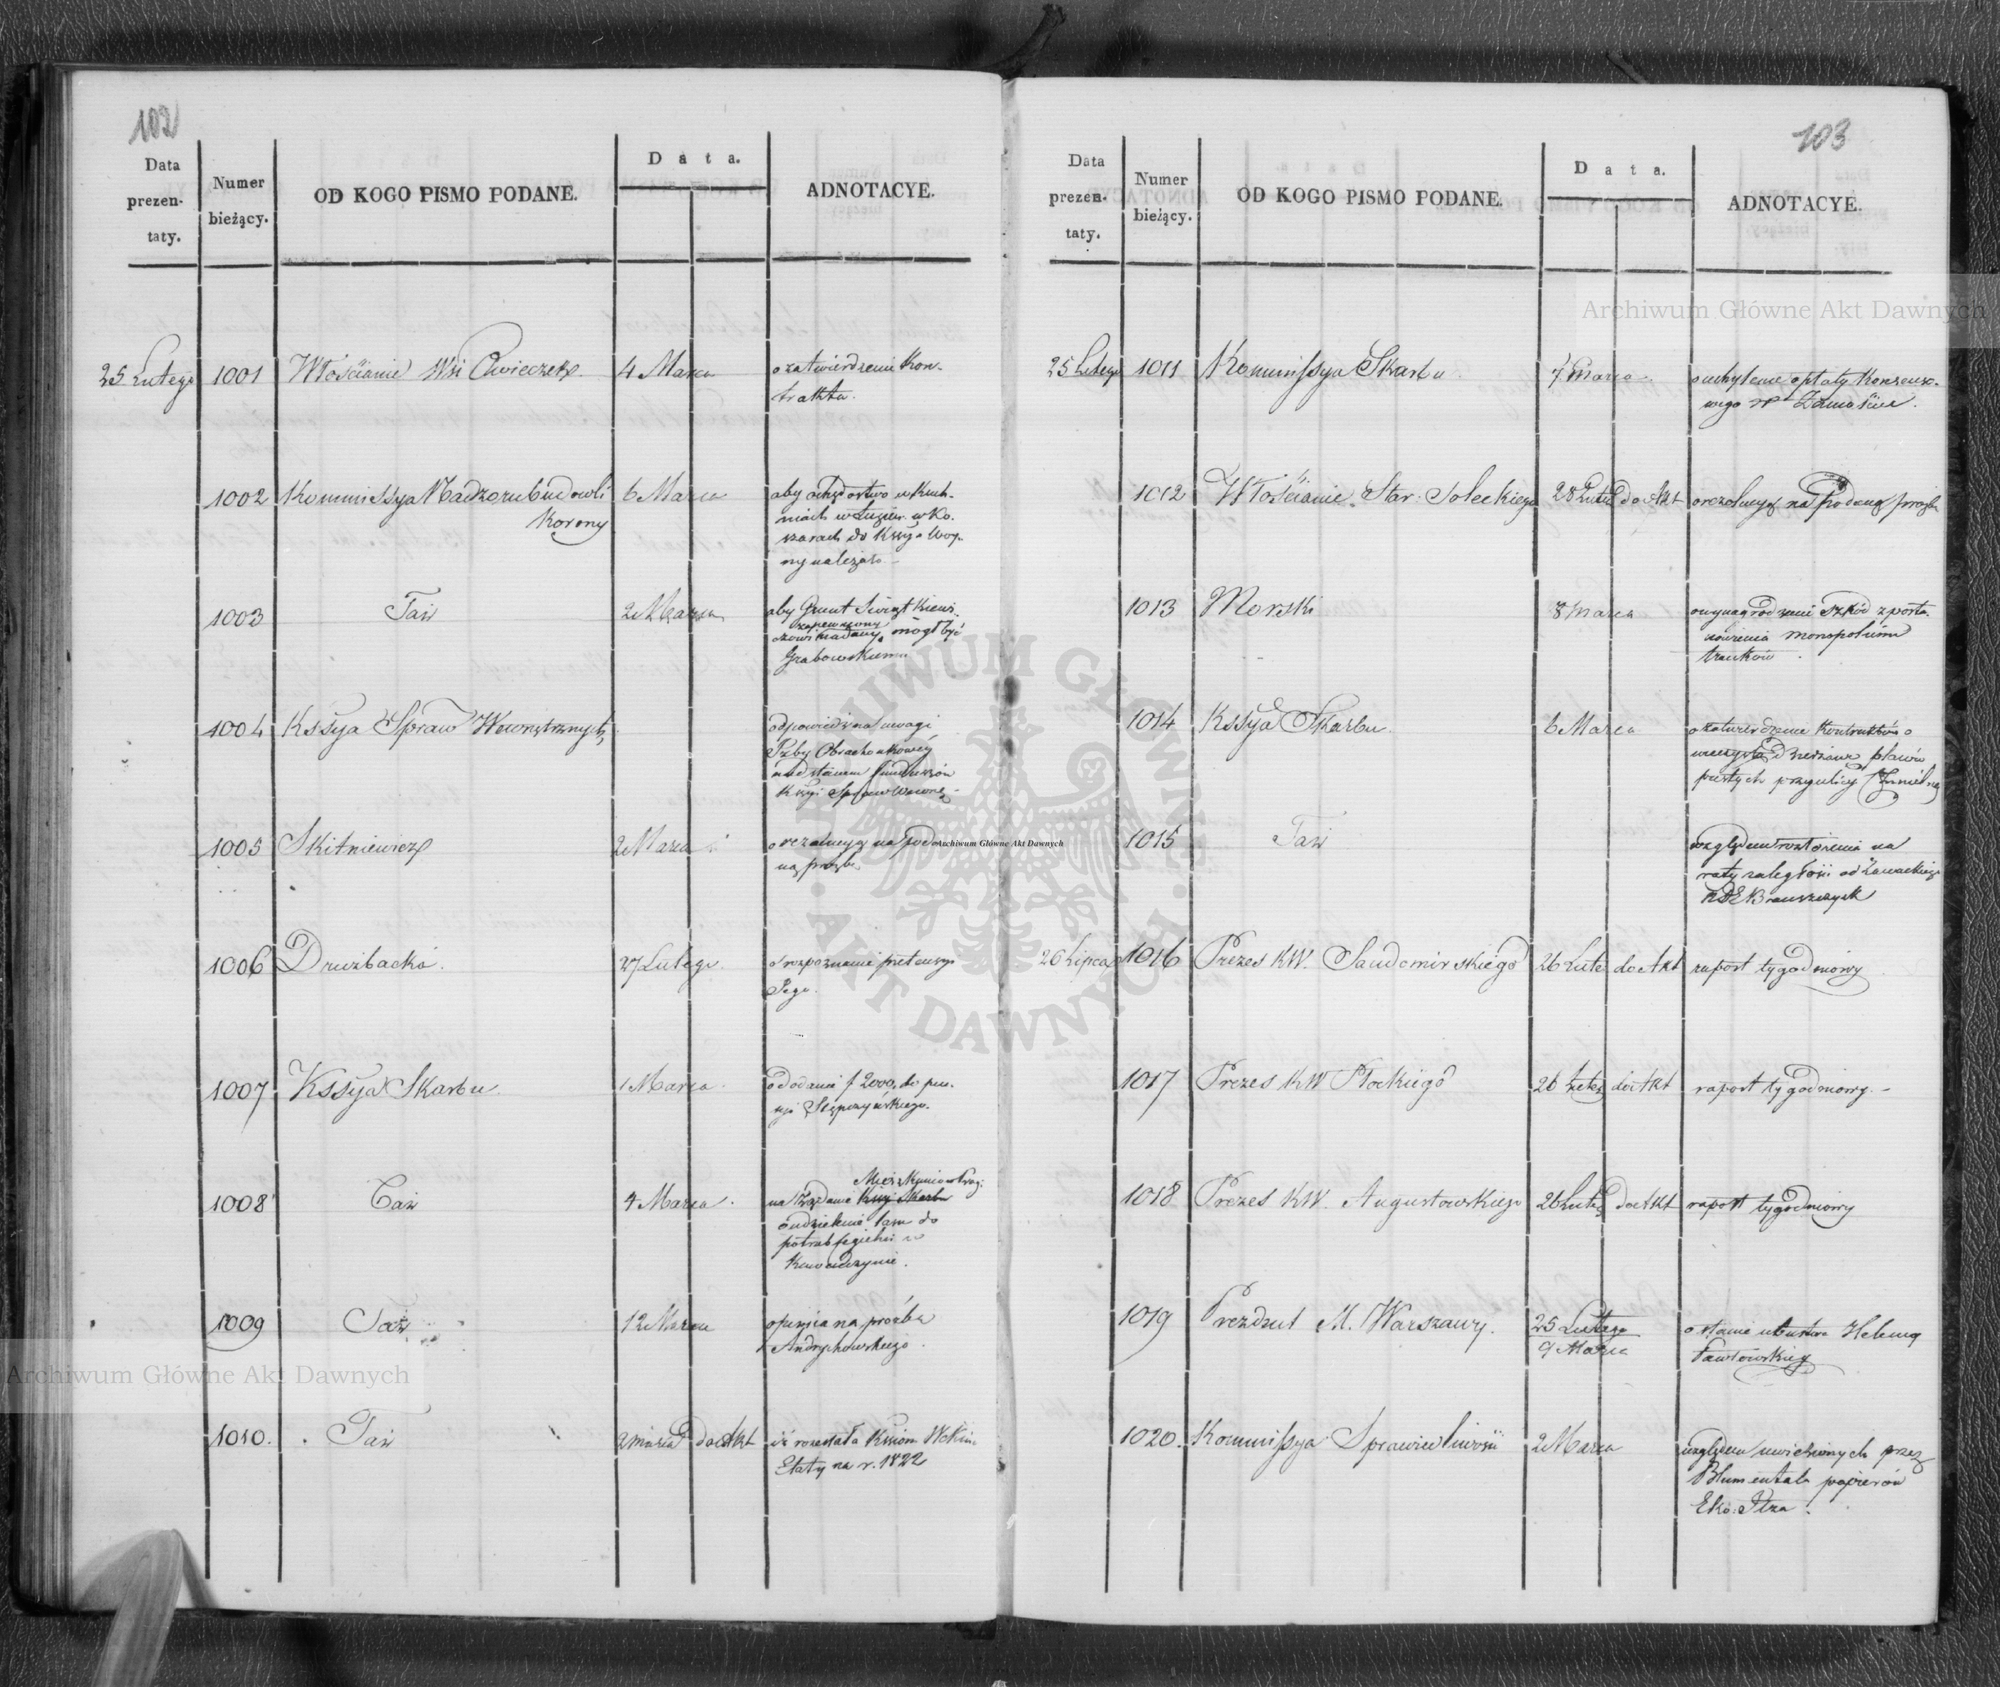 102
Data prezen- taty.
Numer bieżący.
OD KOGO PISMO PODANE.
Data.
ADNOTACYE.
25 Lutego 1001 Włościanie Wsi 4 Marca o zatwierdzenie Kon-
traktu.
1002 Kommissya Nadzoru budowli 6 Marca aby
Korony
szarach do Kssyi Woy-
ny należało
1003 Taż 2 Marca aby Grunt
zapewniony
mógł być
Grabowskiemu
1004 Kssya Spraw Wewnętrznych odpowiedź na uwagi
Izby Obrachonkowéy
nad stanem funduszów
Kssyi Spraw Wewnę-
1005 Skitniewicz 2 Marca o rezolucyą na poda-
ną prozbę
1006 Drużbacka. 27 Lutego. o rozpoznanie pretensyi
Jego.
1007 Kssya Skarbu. 1 Marca. o dodanie f 2000 do pen-
syi Stępczyńskiego.
1008 Taż 4 Marca. na żądanie Kssyi Skarbu
o udzielenie tam do
potrzeb cegielni w
Kawenczynie.
1009 Taż 12 Marca opinia na prozbę
Andrychowskiego.
1010. Taż 2 Marca do Akt iż rozesłała Kssiom Wckim
Etaty na r. 1822
103
Data prezen- taty.
Numer bieżący.
OD KOGO PISMO PODANE.
Data.
ADNOTACYE.
25 Lutego 1011 Kommissya Skarbu 7 Marca. o uchylenie opłaty Konsensо-
wego w Zamościu.
1012 Włościanie Star: Soleckiego 28 Lute do Akt o rezolucyą na podaną prozbę
1013 Morski 8 Marca o wynagrodzenie szkód z posta-
nowienia monopolium
trunków.
1014 Kssya Skarbu. 6 Marca o zatwierdzenie Kontraktów o
wieczystą dzierżawę placów
pustych przy ulicy Chmielney
1015 Taż względem rozłożenia na
raty zaległości od Zawadzkiego
26 Lipca 1016 Prezes KW. Sandomirskiego 26 Lute do Akt raport tygodniowy
1017 Prezes KW Płockiego 26 Luteg do Akt raport tygodniowy.
1018 Prezes KW. Augustowskiego 26 Luteg do Akt raport tygodniowy
1019 Prezdent M. Warszawy. 25 Lutego o stanie ubóstwa Heleny
9 Marca Pawłowskiey
1020. Kommissya Sprawiedliwości 2 Marca względem przez
Blumentala papierów
Eko: Iłża.
Archiwum Główne Akt Dawnych
Archiwum Główne Akt Dawnych
Archiwum Główne Akt Dawnych
ARCHIWUM GŁÓWNE AKT DAWNYCH